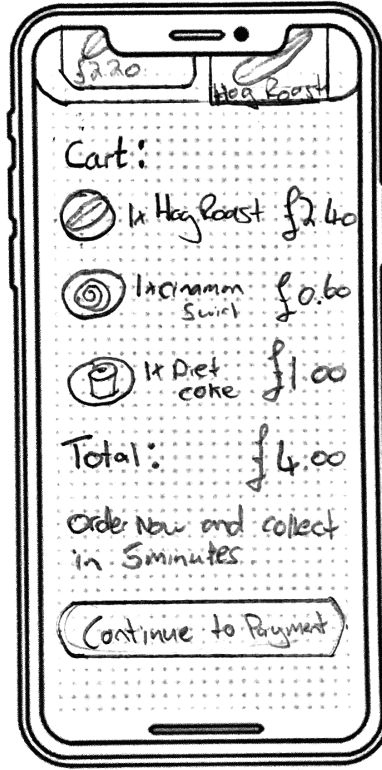 £2.20
Hog Roast
Cart:
1x Hog Roast £2.40
1x cinamon
Swirl
£0.60
1x Diet
coke
£1.00
Total: £4.00
Order Now and collect
in 5minutes.
Continue to Payment